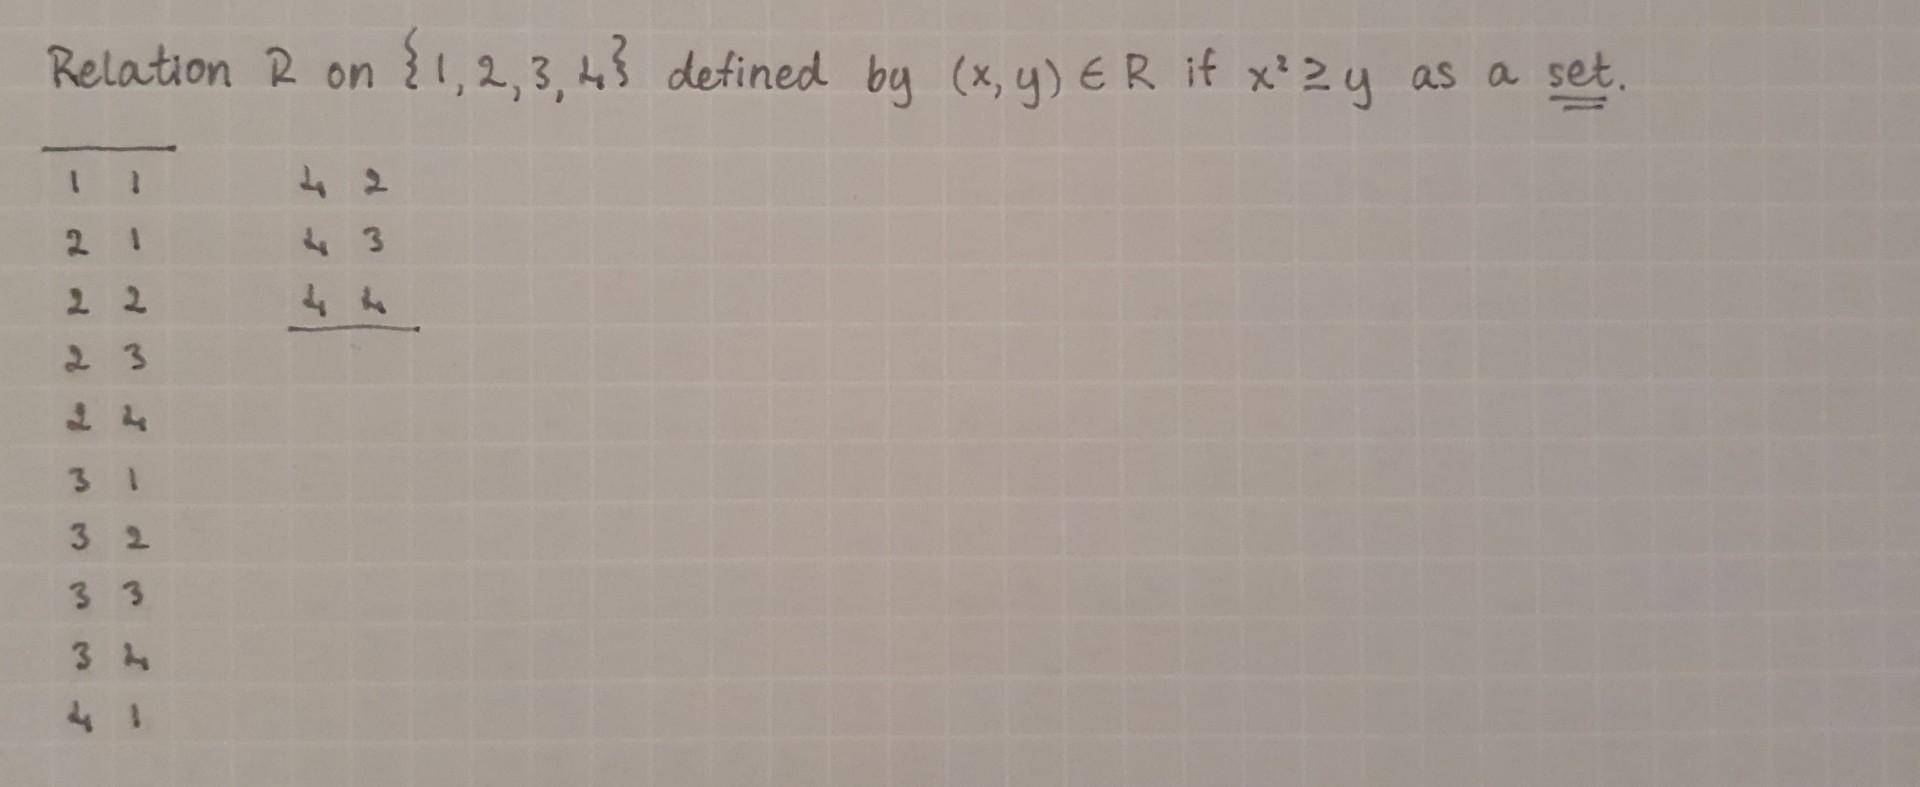 Relation R on {1, 2, 3, 4} defined by (x, y) ∈ R if x² ≥ y as a set.
1 1
2 1
2 2
2 3
2 4
3 1
3 2
3 3
3 4
4 1
4 2
4 3
4 4